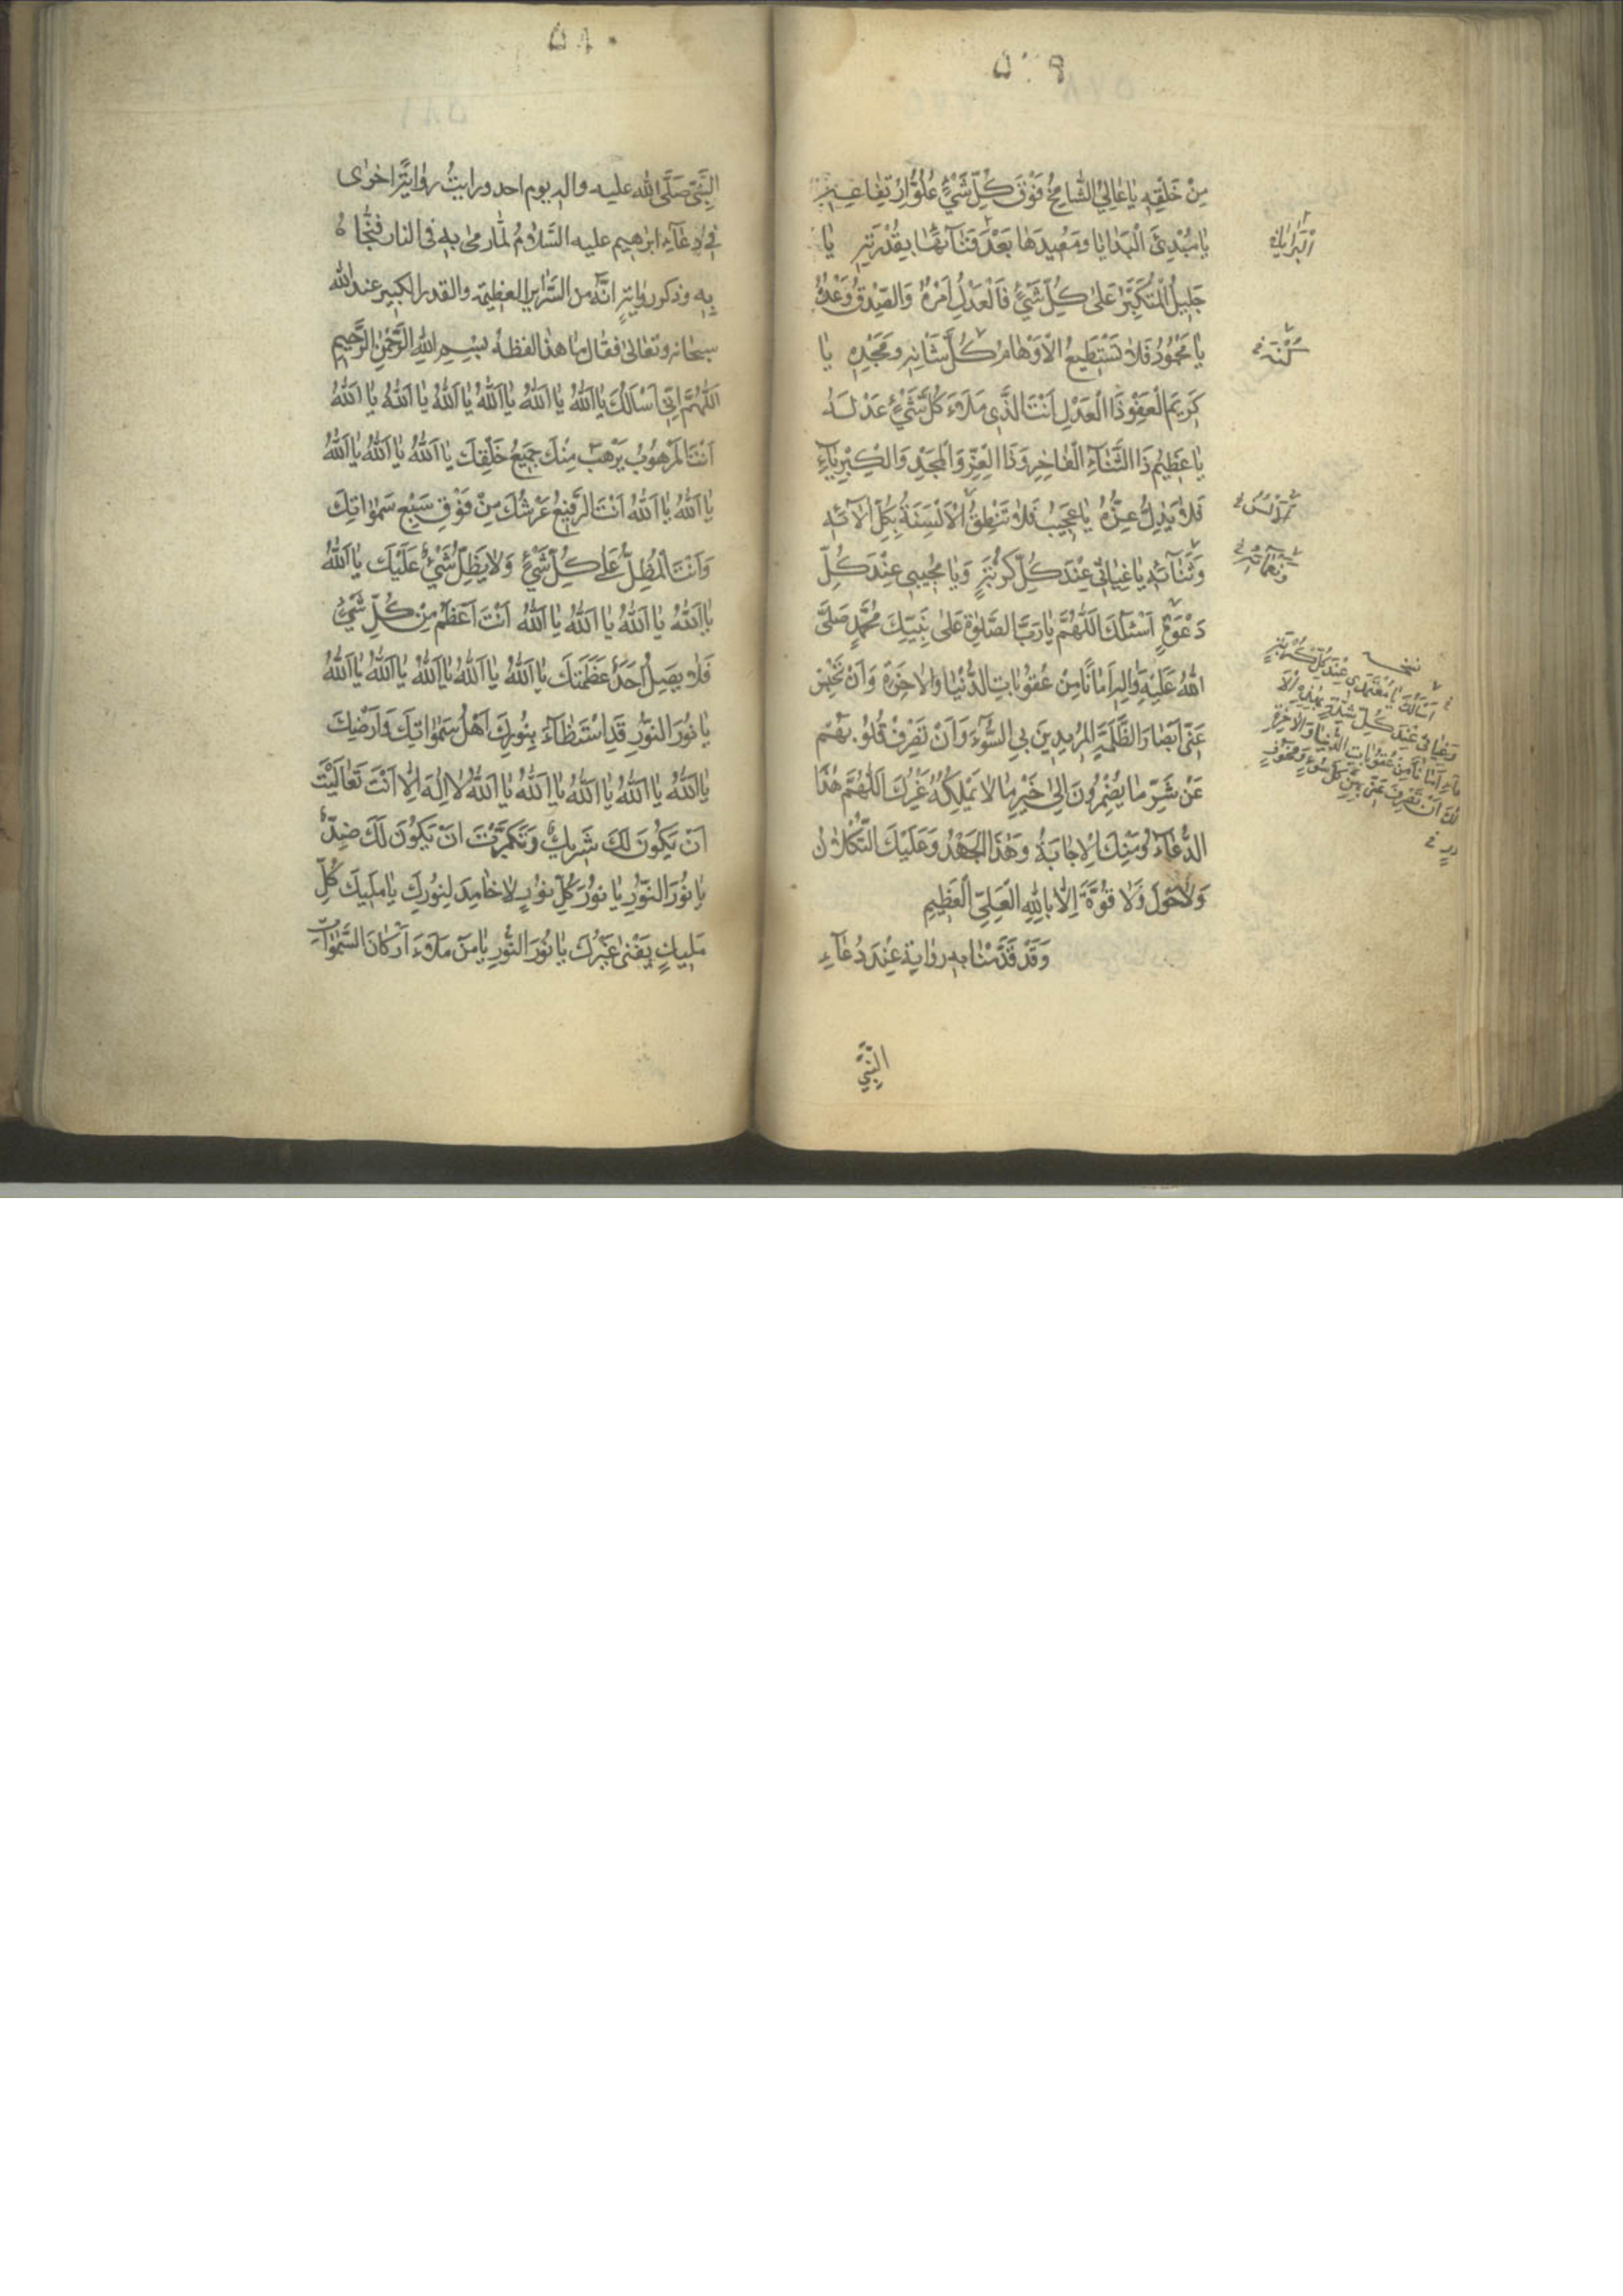 ٥٧٩
مِنْ خَلْقِهِ يَا عَالِيَ الشَّامِخُ فَوْقَ كُلِّ شَيْءٍ عُلُوُّ ارْتِفَاعِهِ
يَا مُبْدِئَ الْبَدَايَا وَمُعِيدَهَا بَعْدَ فَنَآئِهَا بِقُدْرَتِهِ يَا
جَلِيلُ الْمُتَكَبِّرُ عَلٰى كُلِّ شَيْءٍ فَالْعَدْلُ اَمْرُهُ وَالصِّدْقُ وَعْدُهُ
يَا مَحْمُودُ فَلَا تَسْتَطِيعُ الْاَوْهَامُ كُلَّ شَانِهِ وَمَجْدِهِ يَا
كَرِيمَ الْعَفْوِ ذَا الْعَدْلِ اَنْتَ الَّذِي مَلَاءَ كُلَّ شَيْءٍ عَدْلُهُ
يَا عَظِيمُ ذَا الثَّنَآءِ الْفَاخِرِ وَذَا الْعِزِّ وَالْمَجْدِ وَالْكِبْرِيَآءِ
فَلَا يَذِلُّ عِزُّهُ يَا عَجِيبُ فَلَا تَنْطِقُ الْاَلْسِنَةُ بِكُلِّ اٰلَآئِهِ
وَثَنَآئِهِ يَا غِيَاثِي عِنْدَ كُلِّ كُرْبَةٍ وَيَا مُجِيبِي عِنْدَ كُلِّ
دَعْوَةٍ اَسْئَلُكَ اللّٰهُمَّ يَا رَبَّ الصَّلٰوةِ عَلٰى نَبِيِّكَ مُحَمَّدٍ صَلَّى
اللهُ عَلَيْهِ وَاٰلِهِ اَمَانًا مِنْ عُقُوبَاتِ الدُّنْيَا وَالْاٰخِرَةِ وَاَنْ تَحْبِسَ
عَنِّي اَبْصَارَ الظَّلَمَةِ الْمُرِيدِينَ بِيَ السُّوٓءَ وَاَنْ تَصْرِفَ قُلُوبَهُمْ
عَنْ شَرِّ مَا يُضْمِرُونَ اِلٰى خَيْرِ مَا لَا يَمْلِكُهُ غَيْرُكَ اللّٰهُمَّ هٰذَا
الدُّعَآءُ وَمِنْكَ الْاِجَابَةُ وَهٰذَا الْجَهْدُ وَعَلَيْكَ التُّكْلَانُ
وَلَا حَوْلَ وَلَا قُوَّةَ اِلَّا بِاللهِ الْعَلِيِّ الْعَظِيمِ
وَقَدْ قَدَّمْنَا بِهِ رِوَايَةً عِنْدَ دُعَآءِ
النَّبِيِّ
الْبَرَايَا
كُنْهَ خ
الْاَلْسُنُ خ
وَنَعْمَآئِهِ خ
نسخه
اَسْاَلُكَ يَا مُعْتَمَدِي عِنْدَ كُلِّ كُرْبَةٍ
وَغِيَاثِي عِنْدَ كُلِّ شِدَّةٍ بِهٰذِهِ الْاَ
مَآءِ اَمَانًا مِنْ عُقُوبَاتِ الدُّنْيَا وَالْاٰخِرَةِ
اَنْ تَصْرِفَ عَنِّي بِهِنَّ كُلَّ سُوٓءٍ وَمَخُوفٍ
٥٨٠
النَّبِيِّ صَلَّى الله عليه واله يوم احد ورايتُ رِوَايَةً اخرى
فِي دعآءِ ابرٰهيم عليه السَّلَامُ لَمَّا رمى به فى النار فنجّاهُ
بِهِ وذكر روايته انَّهُ من السَّرَاير العظيمة والقدر الكبير عند الله
سبحانه وتعالى فقال ما هذا لفظه بِسْمِ اللهِ الرَّحْمٰنِ الرَّحِيمِ
اللّٰهُمَّ اِنِّي اَسْاَلُكَ يَا اَللهُ يَا اَللهُ يَا اَللهُ يَا اَللهُ يَا اَللهُ يَا اَللهُ
اَنْتَ الْمَرْهُوبُ يَرْهَبُ مِنْكَ جَمِيعُ خَلْقِكَ يَا اَللهُ يَا اَللهُ يَا اَللهُ
يَا اَللهُ يَا اَللهُ اَنْتَ الرَّفِيعُ عَرْشُكَ مِنْ فَوْقِ سَبْعِ سَمٰوَاتِكَ
وَاَنْتَ الْمُظِلُّ عَلٰى كُلِّ شَيْءٍ وَلَا يُظِلُّ شَيْءٌ عَلَيْكَ يَا اَللهُ
يَا اَللهُ يَا اَللهُ يَا اَللهُ يَا اَللهُ اَنْتَ اَعْظَمُ مِنْ كُلِّ شَيْءٍ
فَلَا يَصِلُ اَحَدٌ عَظَمَتَكَ يَا اَللهُ يَا اَللهُ يَا اَللهُ يَا اَللهُ يَا اَللهُ
يَا نُورَ النُّورِ قَدِ اسْتَضَآءَ بِنُورِكَ اَهْلُ سَمٰوَاتِكَ وَاَرْضِكَ
يَا اَللهُ يَا اَللهُ يَا اَللهُ يَا اَللهُ يَا اَللهُ لَا اِلٰهَ اِلَّا اَنْتَ تَعَالَيْتَ
اَنْ يَكُونَ لَكَ شَرِيكٌ وَتَكَبَّرْتَ اَنْ يَكُونَ لَكَ ضِدٌّ
يَا نُورَ النُّورِ يَا نُورَ كُلِّ نُورٍ لَا خَامِدَ لِنُورِكَ يَا مَلِيكَ كُلِّ
مَلِيكٍ يَفْنٰى غَيْرُكَ يَا نُورَ النُّورِ يَا مَنْ مَلَاءَ اَرْكَانَ السَّمٰوَاتِ